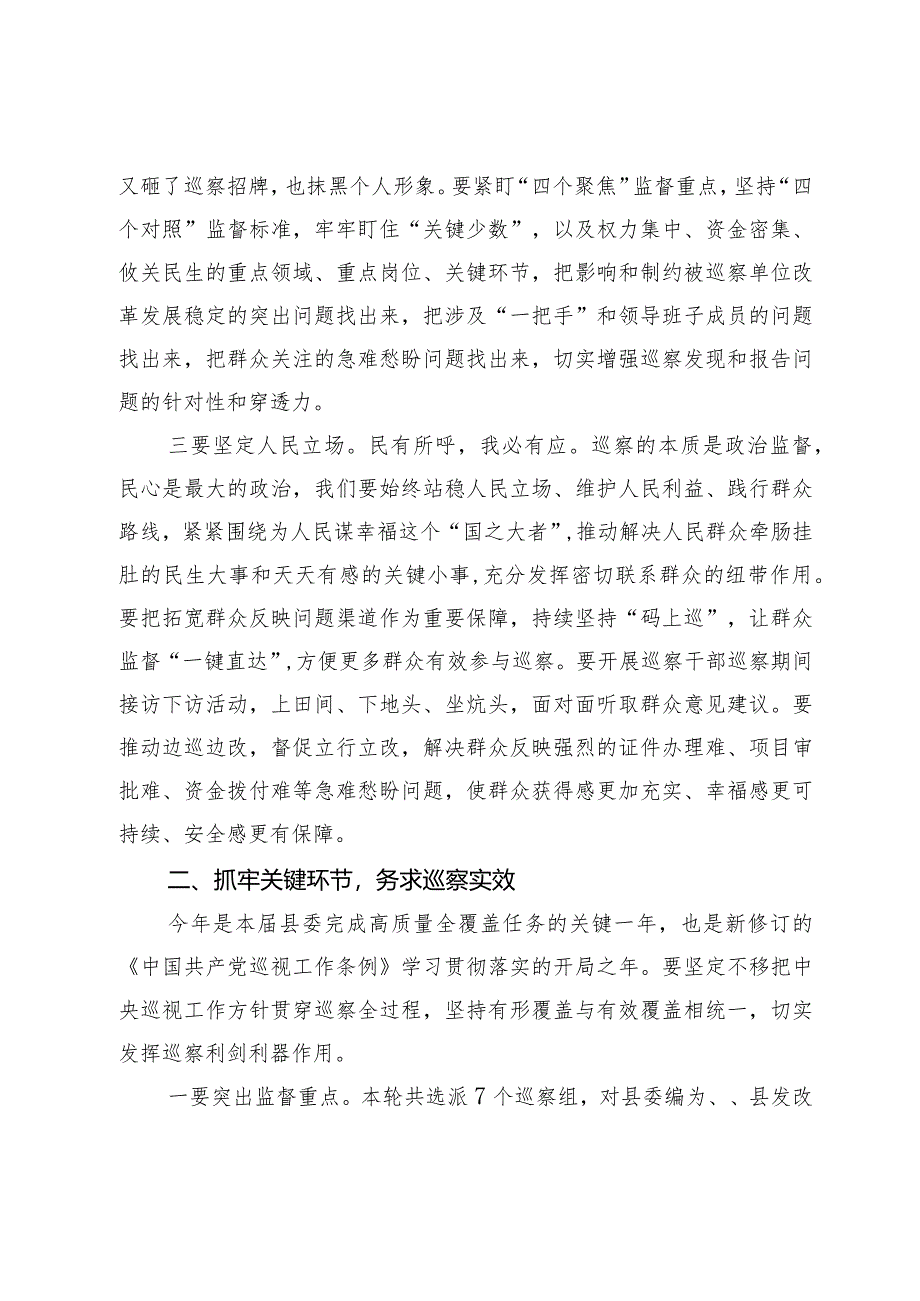 又砸了巡察招牌，也抹黑个人形象。要紧盯“四个聚焦”监督重点，坚持“四
个对照”监督标准，牢牢盯住“关键少数”，以及权力集中、资金密集、
攸关民生的重点领域、重点岗位、关键环节，把影响和制约被巡察单位改
革发展稳定的突出问题找出来，把涉及“一把手”和领导班子成员的问题
找出来，把群众关注的急难愁盼问题找出来，切实增强巡察发现和报告问
题的针对性和穿透力。
三要坚定人民立场。民有所呼，我必有应。巡察的本质是政治监督，
民心是最大的政治，我们要始终站稳人民立场、维护人民利益、践行群众
路线，紧紧围绕为人民谋幸福这个“国之大者”,推动解决人民群众牵肠挂
肚的民生大事和天天有感的关键小事,充分发挥密切联系群众的纽带作用。
要把拓宽群众反映问题渠道作为重要保障，持续坚持“码上巡”，让群众
监督“一键直达”,方便更多群众有效参与巡察。要开展巡察干部巡察期间
接访下访活动，上田间、下地头、坐炕头，面对面听取群众意见建议。要
推动边巡边改，督促立行立改，解决群众反映强烈的证件办理难、项目审
批难、资金拨付难等急难愁盼问题，使群众获得感更加充实、幸福感更可
持续、安全感更有保障。
二、抓牢关键环节，务求巡察实效
今年是本届县委完成高质量全覆盖任务的关键一年，也是新修订的
《中国共产党巡视工作条例》学习贯彻落实的开局之年。要坚定不移把中
央巡视工作方针贯穿巡察全过程，坚持有形覆盖与有效覆盖相统一，切实
发挥巡察利剑利器作用。
一要突出监督重点。本轮共选派7个巡察组，对县委编为、、县发改